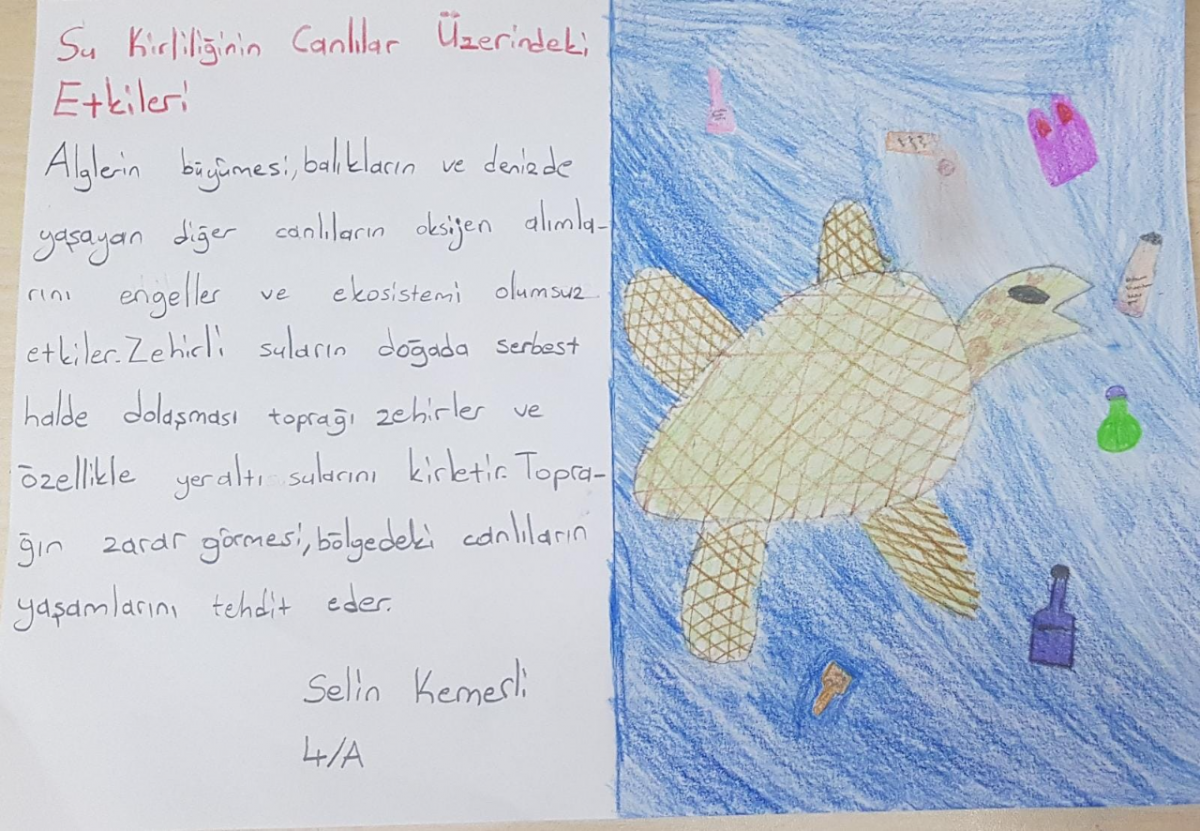 Su Kirliliğinin Canlılar Üzerindeki
Etkileri
Alglerin büyümesi, balıkların ve denizde
yaşayan diğer canlıların oksijen alımla-
rını engeller ve ekosistemi olumsuz
etkiler. Zehirli suların doğada serbest
halde dolaşması toprağı zehirler ve
özellikle yeraltı sularını kirletir. Topra-
ğın zarar görmesi, bölgedeki canlıların
yaşamlarını tehdit eder.
Selin Kemerli
4/A